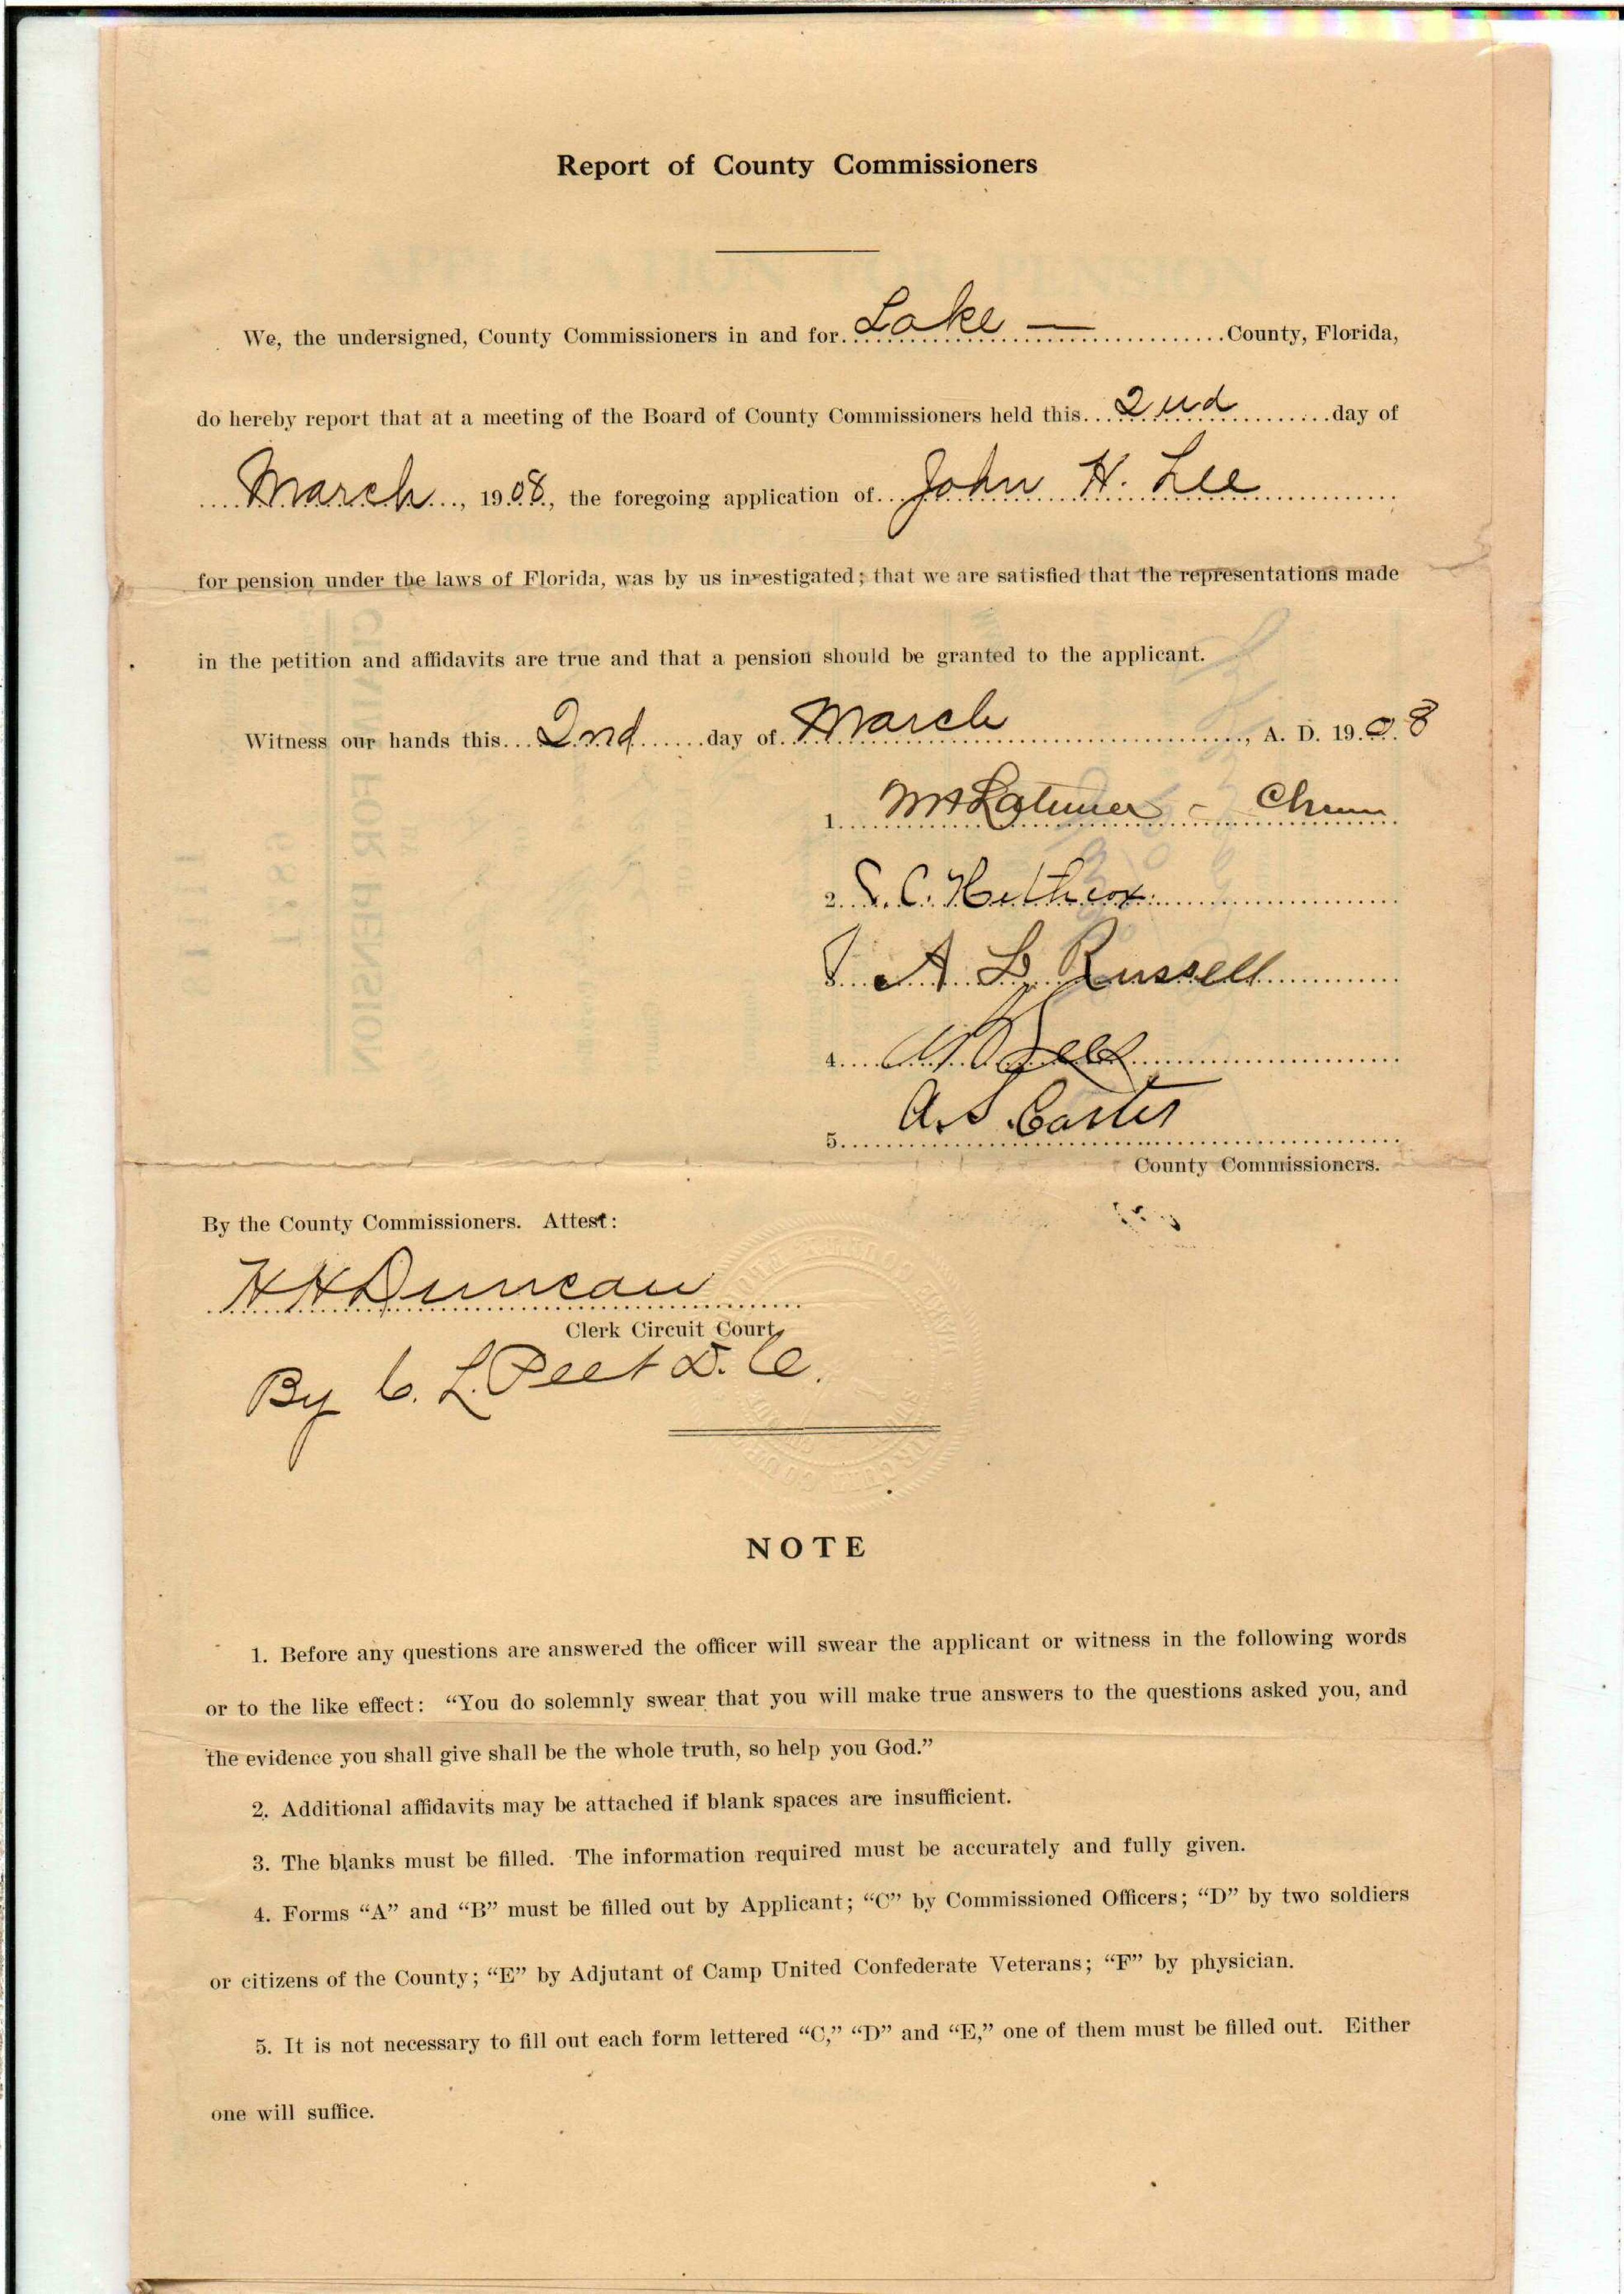 Report of County Commissioners
We, the undersigned, County Commissioners in and for Lake — County, Florida,
do hereby report that at a meeting of the Board of County Commissioners held this 2nd day of
March, 1908, the foregoing application of John H. Lee
for pension under the laws of Florida, was by us investigated; that we are satisfied that the representations made
in the petition and affidavits are true and that a pension should be granted to the applicant.
Witness our hands this 2nd day of March, A. D. 1908
1. M A Latimer - Chmn
2. C. Hethcox
3. A. L. Russell
4.
5. A. S. Carter
County Commissioners.
By the County Commissioners. Attest:
H H Duncan
Clerk Circuit Court,
By C. L. Peet D. C.
NOTE
1. Before any questions are answered the officer will swear the applicant or witness in the following words
or to the like effect: “You do solemnly swear that you will make true answers to the questions asked you, and
the evidence you shall give shall be the whole truth, so help you God.”
2. Additional affidavits may be attached if blank spaces are insufficient.
3. The blanks must be filled. The information required must be accurately and fully given.
4. Forms “A” and “B” must be filled out by Applicant; “C” by Commissioned Officers; “D” by two soldiers
or citizens of the County; “E” by Adjutant of Camp United Confederate Veterans; “F” by physician.
5. It is not necessary to fill out each form lettered “C,” “D” and “E,” one of them must be filled out. Either
one will suffice.